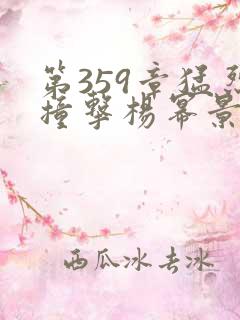 第359章猛烈
撞擊楊幂景
西瓜冰去冰